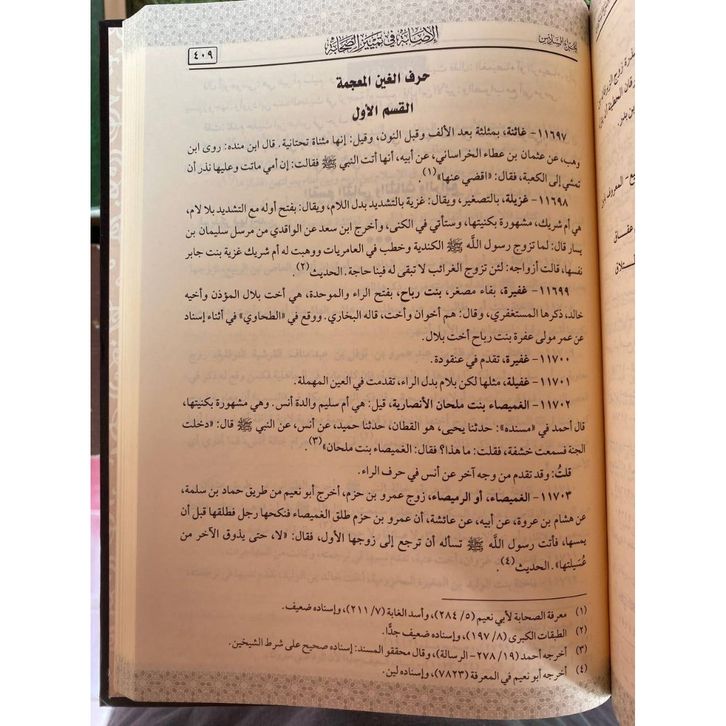 الإصابة في تمييز الصحابة
٤٠٩
حرف الغين المعجمة
القسم الأول
١١٦٩٧- غائنة، بمثلثة بعد الألف وقبل النون، وقيل: إنها مثناة تحتانية. قال ابن منده: روى ابن
وهب، عن عثمان بن عطاء الخراساني، عن أبيه، أنها أتت النبي ﷺ فقالت: إن أمي ماتت وعليها نذر أن
تمشي إلى الكعبة، فقال: «اقضي عنها»(١)
١١٦٩٨- غزيلة، بالتصغير، ويقال: غزية بالتشديد بدل اللام، ويقال: بفتح أوله مع التشديد بلا لام،
هي أم شريك، مشهورة بكنيتها، وستأتي في الكنى، وأخرج ابن سعد عن الواقدي من مرسل سليمان بن
يسار قال: لما تزوج رسول اللَّه ﷺ الكندية وخطب في العامريات ووهبت له أم شريك غزية بنت جابر
نفسها، قالت أزواجه: لئن تزوج الغرائب لا تبقى له فينا حاجة. الحديث(٢).
١١٦٩٩- غفيرة، بفاء مصغر، بنت رباح، بفتح الراء والموحدة، هي أخت بلال المؤذن وأخيه
خالد، ذكرها المستغفري، وقال: هم أخوان وأخت، قاله البخاري. ووقع في «الطحاوي» في أثناء إسناد
عن عمر مولى عفرة بنت رباح أخت بلال.
١١٧٠٠- غفيرة، تقدم في عنقودة.
١١٧٠١- غفيلة، مثلها لكن بلام بدل الراء، تقدمت في العين المهملة.
١١٧٠٢- الغميصاء بنت ملحان الأنصارية، قيل: هي أم سليم والدة أنس. وهي مشهورة بكنيتها،
قال أحمد في «مسنده»: حدثنا يحيى، هو القطان، حدثنا حميد، عن أنس، عن النبي ﷺ قال: «دخلت
الجنة فسمعت خشفة، فقلت: ما هذا؟ فقال: الغميصاء بنت ملحان»(٣).
قلتُ: وقد تقدم من وجه آخر عن أنس في حرف الراء.
١١٧٠٣- الغميصاء، أو الرميصاء، زوج عمرو بن حزم، أخرج أبو نعيم من طريق حماد بن سلمة،
عن هشام بن عروة، عن أبيه، عن عائشة، أن عمرو بن حزم طلق الغميصاء فنكحها رجل فطلقها قبل أن
يمسها، فأتت رسول اللَّه ﷺ تسأله أن ترجع إلى زوجها الأول، فقال: «لا، حتى يذوق الآخر من
عُسَيلتها». الحديث(٤).
(١) معرفة الصحابة لأبي نعيم (٢٨٤/٥)، وأسد الغابة (٢١١/٧)، وإسناده ضعيف.
(٢) الطبقات الكبرى (١٩٧/٨)، وإسناده ضعيف جدًّا.
(٣) أخرجه أحمد (٢٧٨/١٩- الرسالة)، وقال محققو المسند: إسناده صحيح على شرط الشيخين.
(٤) أخرجه أبو نعيم في المعرفة (٧٨٢٣)، وإسناده لين.